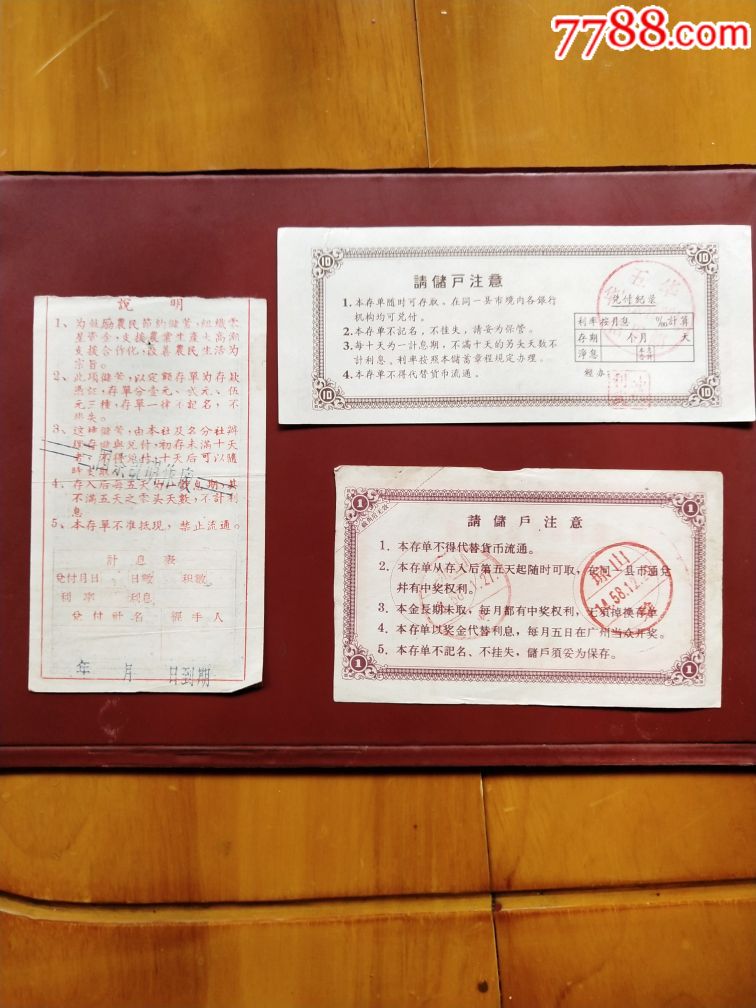 7788.com
说明
1、为鼓励農民節約儲蓄，組織零
星资金，支援農業生產大高潮
支援合作化，改善農民生活为
宗旨。
2、此項儲蓄，以定额存單为存欵
憑証，存單分壹元、弍元、伍
元三種，存單一律不記名，不
挂失。
3、这種儲蓄，由本社及各分社辦
理存儲與兑付，初存未滿十天
者，不得兑付，十天后可以隨
時
4、存入后每五天为一計息期，其
不滿五天之零头天數，不計利
息
5、本存單不准抵現，禁止流通。
計息表
兑付月日 日數 积數
利率 利息
兑付社名 經手人
年 月 日到期
10
10
請儲戶注意
1.本存單随时可存取。在同一县市境内各銀行
机构均可兑付。
2.本存單不記名，不挂失，請妥为保管。
3.每十天为一計息期，不滿十天的另头天数不
計利息，利率按照本儲蓄章程规定办理。
4.本存單不得代替貨币流通。
兑付紀录
利率按月息 ‰計算
存期 个月 天
淨息
經办：
五华
10
10
1
1
請儲戶注意
1．本存单不得代替貨币流通。
2．本存单从存入后第五天起随时可取，在同一县市通兑
并有中奖权利。
3．本金長期未取，每月都有中奖权利，无須掉换存单。
4．本存单以奖金代替利息，每月五日在广州当众开奖。
5．本存单不記名、不挂失，儲戶須妥为保存。
58.12.
1
1